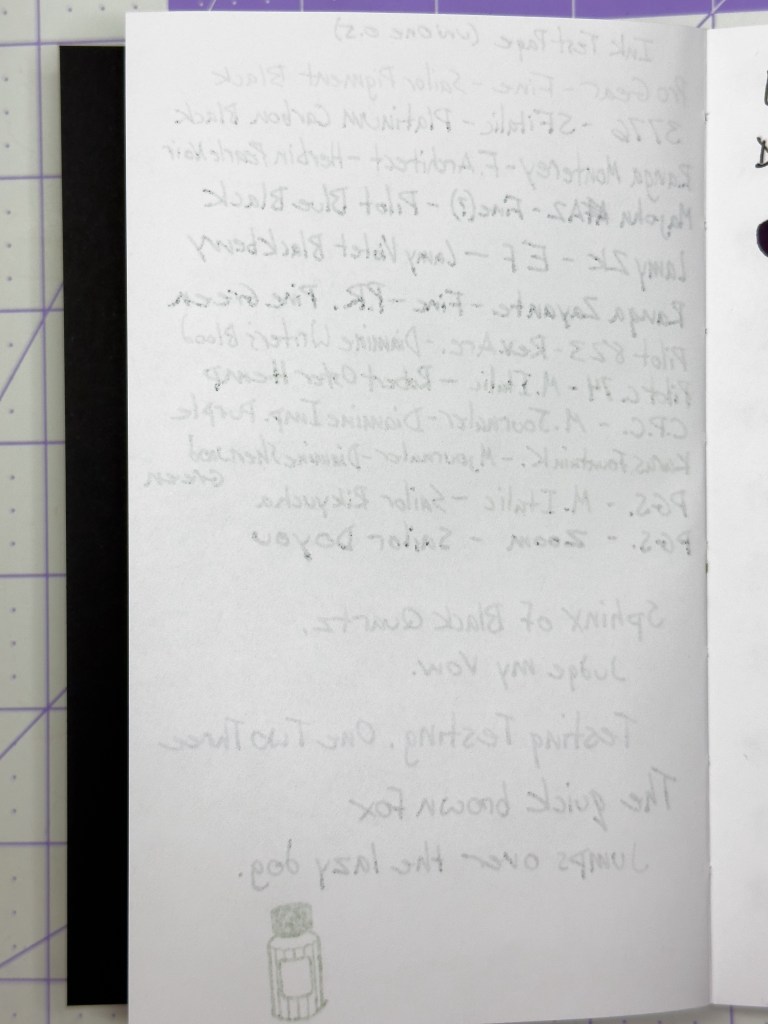 Ink Test Page (Uni one 0.5)
Pro Gear - Fine - Sailor Pigment Black
3776 - SF italic - Platinum Carbon Black
Ranga Monterey - F. Architect - Herbin Perle Noir
Majohn A2 - Fine(?) - Pilot Blue Black
Lamy 2k - EF - Lamy Violet Blackberry
Ranga Zayante - Fine - P.R. Pine Green
Pilot 823 - Rex Arc. - Diamine Writer's Blood
Pilot c. 74 - M. Italic - Robert Oster Hemp
C.P.C. - M. Journaler - Diamine Imp. Purple
Fountain K. - M journaler - Diamine Sherwood
Green
PGS. - M. Italic - Sailor Rikyucha
PGS. - Zoom - Sailor Doyou
Sphinx of Black Quartz,
Judge my Vow.
Testing Testing. One Two Three
The quick brown Fox
Jumps over the lazy dog.